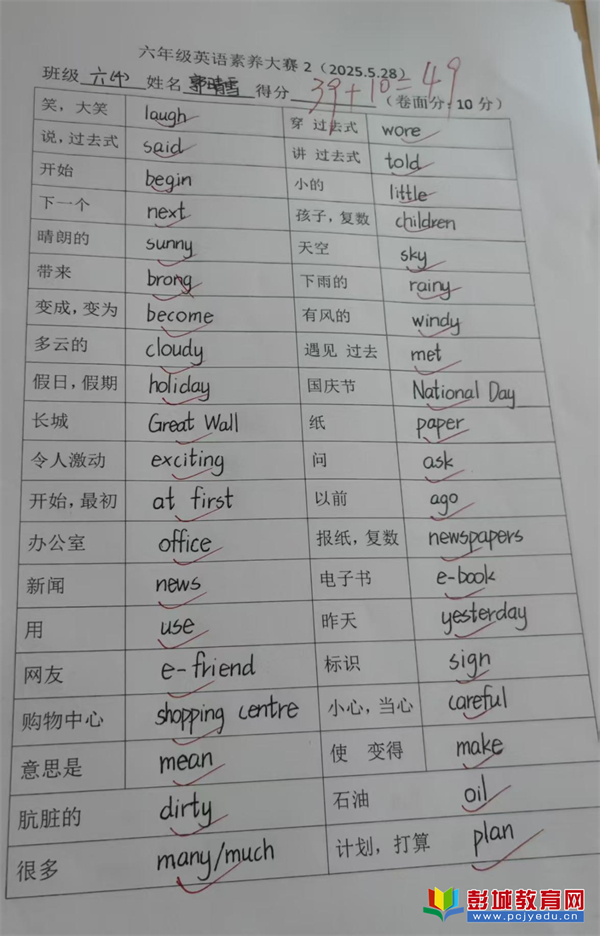 六年级英语素养大赛 2（2025.5.28）
班级 六(4) 姓名 郭晴雪 得分 39+10=49 （卷面分：10 分）
笑，大笑 laugh 穿 过去式 wore
说，过去式 said 讲 过去式 told
开始 begin 小的 little
下一个 next 孩子，复数 children
晴朗的 sunny 天空 sky
带来 brong 下雨的 rainy
变成，变为 become 有风的 windy
多云的 cloudy 遇见 过去 met
假日，假期 holiday 国庆节 National Day
长城 Great Wall 纸 paper
令人激动 exciting 问 ask
开始，最初 at first 以前 ago
办公室 office 报纸，复数 newspapers
新闻 news 电子书 e-book
用 use 昨天 yesterday
网友 e-friend 标识 sign
购物中心 shopping centre 小心，当心 careful
意思是 mean 使 变得 make
肮脏的 dirty 石油 oil
很多 many/much 计划，打算 plan
彭城教育网
www.pcjyedu.cn